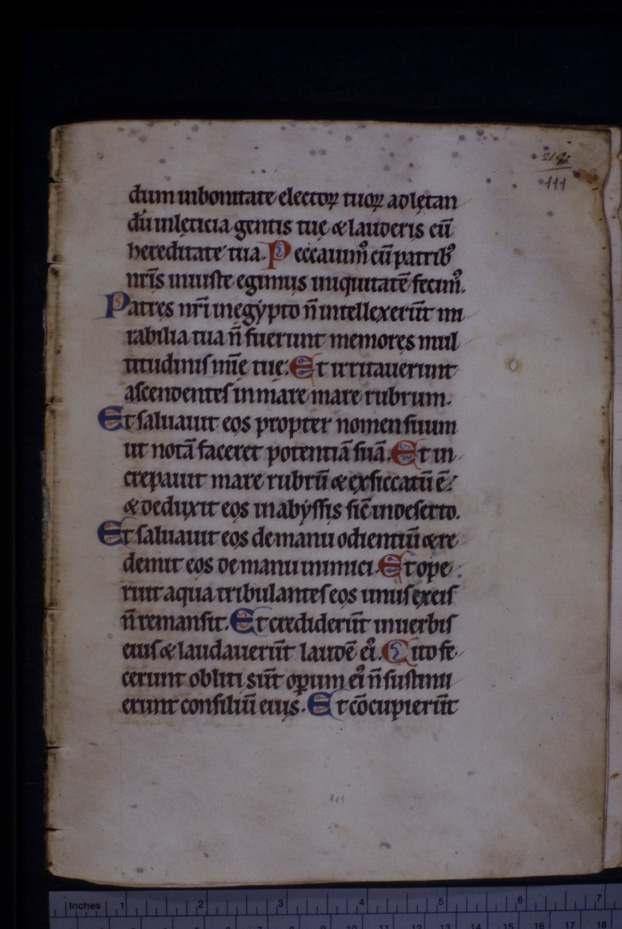 111
dum inbonitate electoꝝ tuoꝝ adletan
dū inleticia gentis tuę & lauderis cū
hereditate tua. Peccauimꝰ cū patribꝰ
nr̄is iniuste egimus iniquitatē fecimꝰ.
Patres nr̄i inegypto n̄ intellexerūt mi
rabilia tua n̄ fuerunt memores mul
titudinis mīe tue: Et irritauerunt
ascendentes in mare mare rubrum.
Et saluauit eos propter nomen suum
ut notā faceret potentiā suā. Et in
crepauit mare rubrū & exsiccatū ē:
& deduxit eos inabyssis sic̄ indeserto.
Et saluauit eos demanu odientiū & re
demit eos demanu inimici. Et ope
ruit aqua tribulantes eos unus exeis
n̄ remansit. Et crediderūt inuerbis
eius & laudauerūt laudē eiꝰ. Cito fe
cerunt obliti sūt opum eiꝰ n̄ sustinu
erunt consiliū eius. Et cōcupierūt
111
Inches 1 2 3 4 5 6 7
1 2 3 4 5 6 7 8 9 10 11 12 13 14 15 16 17 18